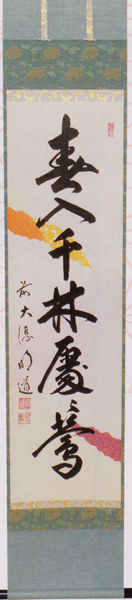 春入千林處〻鶯
前大德明道